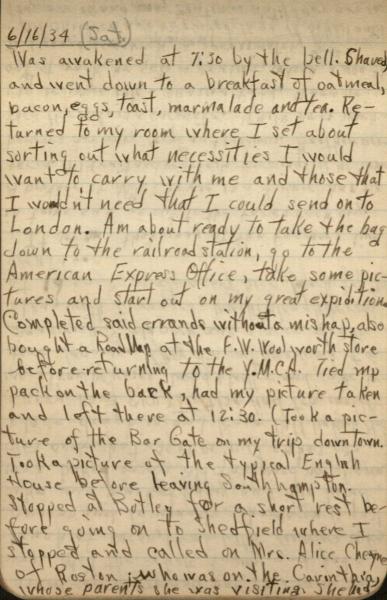 6/16/34 (Sat.)
Was awakened at 7:30 by the bell. Shaved
and went down to a breakfast of oatmeal,
bacon, eggs, toast, marmalade and tea. Re-
turned to my room where I set about
sorting out what necessities I would
want to carry with me and those that
I wouldn't need that I could send on to
London. Am about ready to take the bag
down to the railroad station, go to the
American Express Office, take some pic-
tures and start out on my great expidition.
Completed said errands without a mishap, also
bought a Road Map at the F.W. Woolworth store
before returning to the Y.M.C.A. Tied my
pack on the back, had my picture taken
and left there at 12:30. (Took a pic-
ture of the Bar Gate on my trip downtown.
Took a picture of the typical English
House before leaving Southhampton.
Stopped at Botley for a short rest be-
fore going on to Shedfield where I
stopped and called on Mrs. Alice
of Boston who was on the
whose parents she was visiting. She had